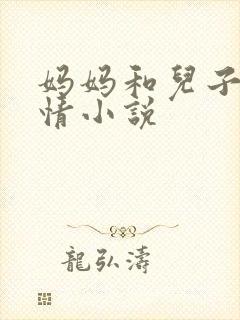 妈妈和兒子
情小说
龍弘濤